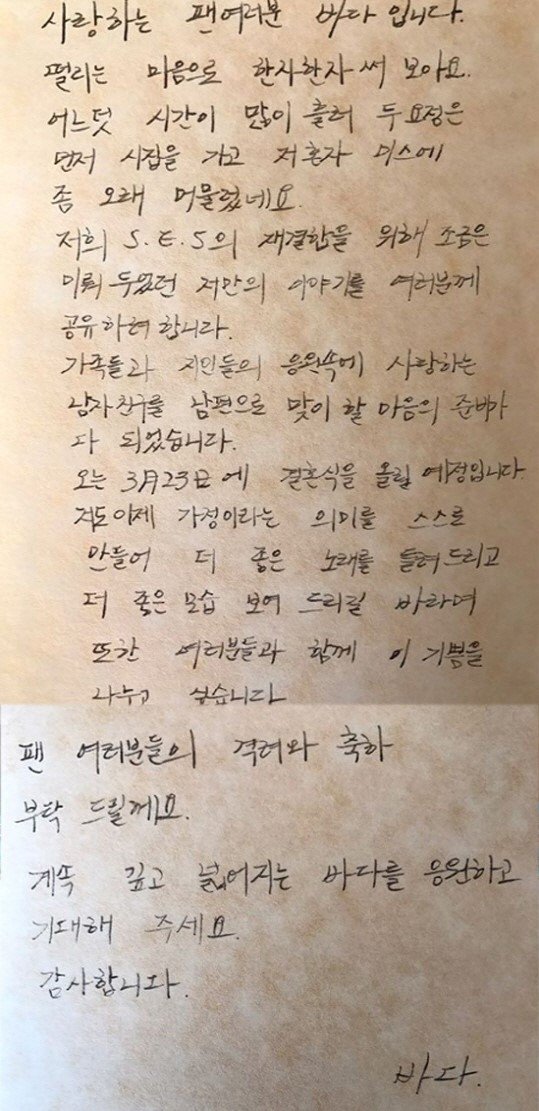 사랑하는 팬여러분 바다입니다.
떨리는 마음으로 한자한자 써 보아요.
어느덧 시간이 많이 흘러 두요정은
먼저 시집을 가고 저혼자 미스에
좀 오래 머물렀네요.
저희 S.E.S의 재결합을 위해 조금은
미뤄두었던 저만의 이야기를 여러분께
공유하려합니다.
가족들과 지인들의 응원속에 사랑하는
남자친구를 남편으로 맞이 할 마음의 준비가
다 되었습니다.
오는 3月23日에 결혼식을 올릴 예정입니다.
저도이제 가정이라는 의미를 스스로
만들어 더 좋은 노래를 들려드리고
더 좋은모습 보여 드리길 바라며
또한 여러분들과 함께 이 기쁨을
나누고 싶습니다
팬 여러분들의 격려와 축하
부탁 드릴께요.
계속 깊고 넓어지는 바다를 응원하고
기대해 주세요.
감사합니다.
바다.